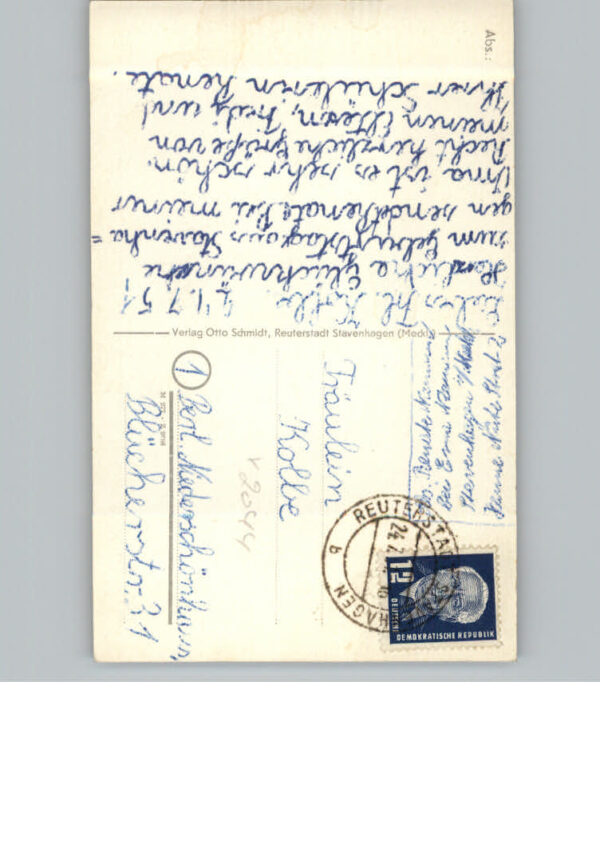 Abs.:
Liebes Frl. Kolbe 24.7.51
Herzliche Glückwünsche
zum Geburtstag aus Stavenha=
gen sendet Renate. Bei meiner
Oma ist es sehr schön.
Recht herzliche Grüße von
meinen Eltern, und
Ihrer Schülerin Renate.
Verlag Otto Schmidt, Reuterstadt Stavenhagen (Meckl.)
Abs. Renate
bei Erna
Stavenhagen i/Meckl
Fräulein
Kolbe
1
Berl. Niederschönhausen
Blücherstr. 31
V 2044
REUTERSTADT STAVENHAGEN b
24.7.
12
DEUTSCHE
DEMOKRATISCHE REPUBLIK